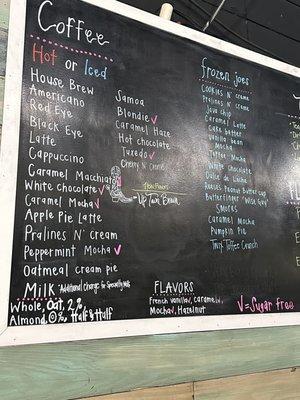 Coffee
Hot or Iced
House Brew
Americano
Red Eye
Black Eye
Latte
Cappuccino
Caramel Macchiato
White chocolate ✓
Caramel Mocha ✓
Apple Pie Latte
Pralines N' cream
Peppermint Mocha ✓
Oatmeal cream pie
Samoa
Blondie ✓
Caramel Haze
Hot chocolate
Tuxedo ✓
Cherry N' Crème
Milk *Additional Charge for Specialty Milks
Whole, Oat, 2%
Almond, 0%, Half & Half
FLAVORS
French vanilla ✓, caramel ✓,
Mocha ✓, Hazelnut
frozen joes
Cookies N' creme
Pralines N' creme
Java chip
Caramel Latte
Cake batter
Vanilla bean
Mocha
Toffee Mocha
White Chocolate
Dulce de Leche
Reeses Peanut Butter cup
Butterfinger
SMORES
Caramel Mocha
Pumpkin Pie
Toffee Crunch
✓=Sugar free